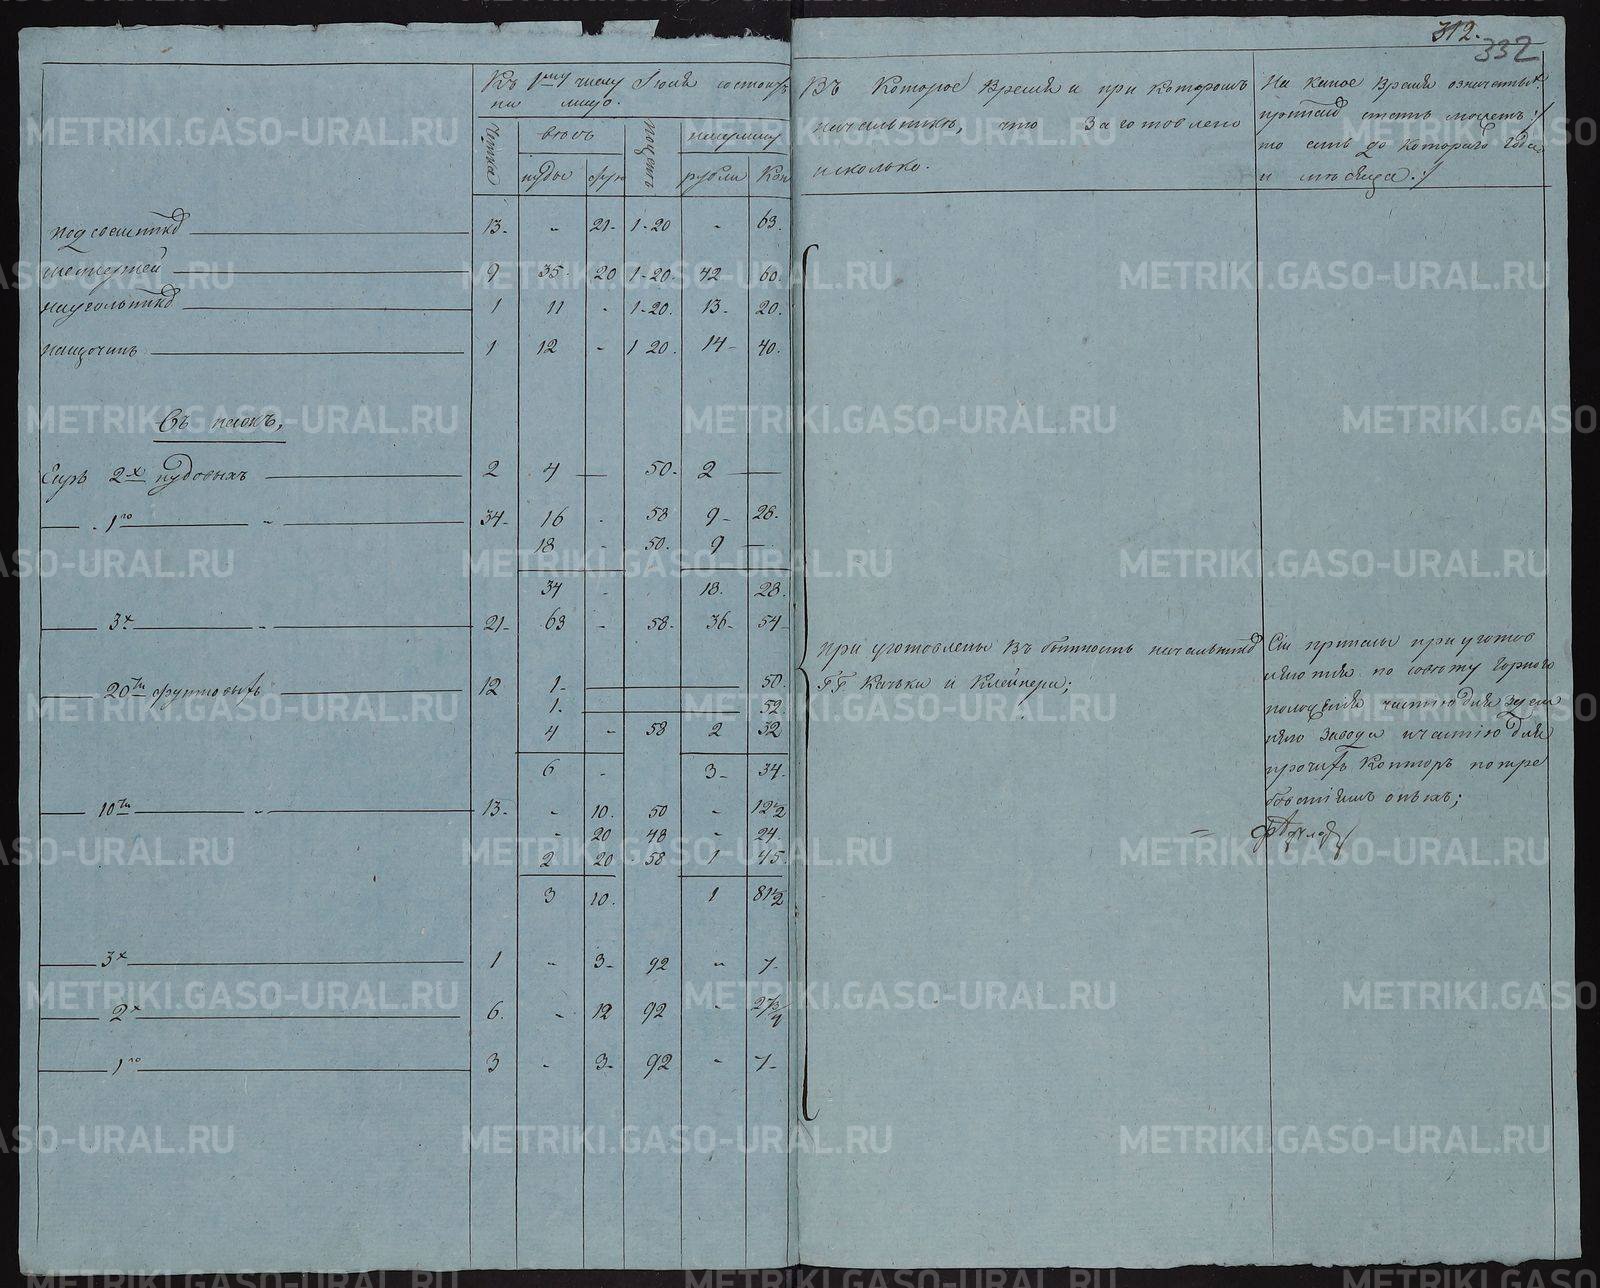 312.
332
Къ 1му числу Июля состоитъ
на лицо.
Въ Которое Время и при которомъ
начальнике, что Заготовлено
и сколько.
На какое Время означенныхъ
припасовъ стать можетъ:/
то есть до котораго Года
и месяца:/
Числа
весъ
поценѣ
насумму
пуды фун рубли Коп
13. - 21- 1-20 - 63.
шестерней 9 35. 20 1-20. 42 60.
1 11 - 1-20. 13- 20.
1 12 - 1 20. 14- 40.
Съ песокъ,
Гирь 2х пудовыхъ 2 4 — 50. 2 —
1го - 34- 16 - 58 9- 28.
18 - 50. 9 —
34 - 18. 28.
3х - 21- 63 - 58- 36- 54-
20ти фунтовыхъ 12 1- 50.
1. 52.
4 - 58 2 32
6 - 3- 34.
10ти - 13. - 10. 50 - 12 1/2
- 20 48 - 24.
2 20 58 1 45.
3 10. 1 81 1/2
3х 1 - 3- 92 - 7-
2х 6. - 12 92 - 27 3/4
1го 3 - 3- 92 - 7-
приуготовлены Въ бытность начальников
ГГ Качки и Клейнера;
Сии припасы приуготов
лены по совету Горного
положения частию для здеш
няго Завода и частию для
прочихъ Конторъ по тре
бованиямъ оныхъ;
METRIKI.GASO-URAL.RU